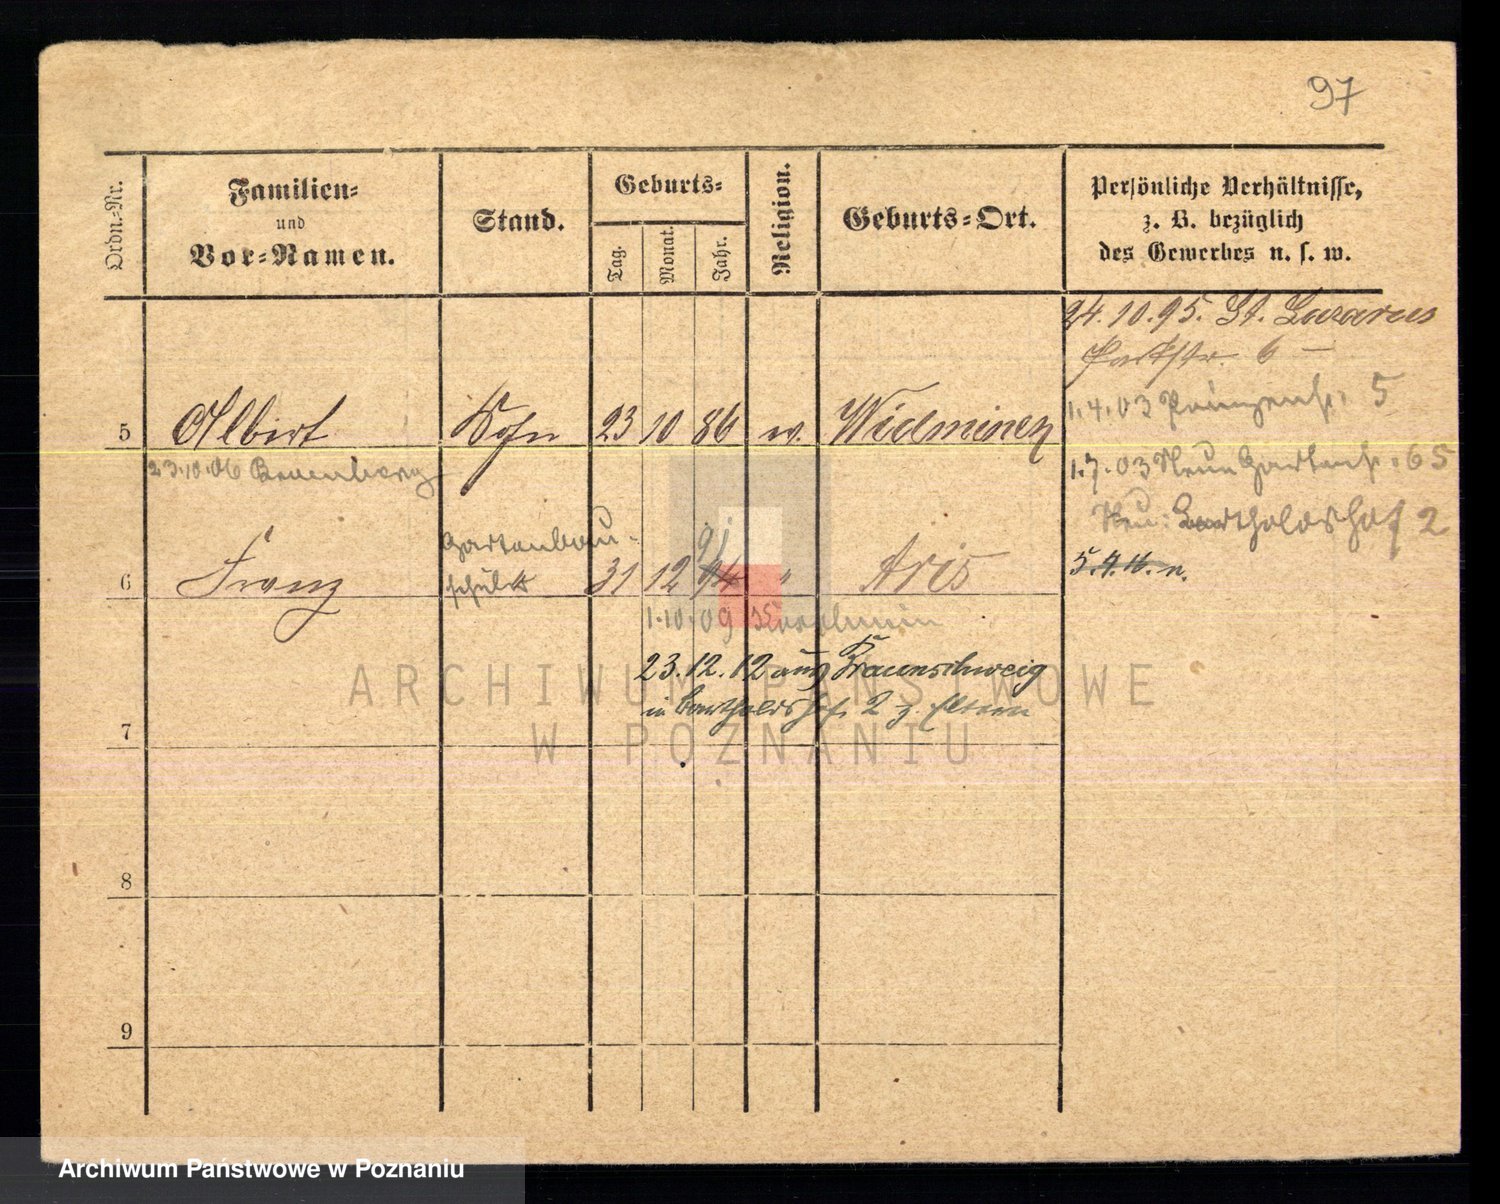 97
Ordn.-Nr.
Familien-
und
Vor-Namen.
Stand.
Geburts-
Tag.
Monat.
Jahr.
Religion.
Geburts-Ort.
Persönliche Verhältnisse,
z. B. bezüglich
des Gewerbes u. s. w.
24.10.95. St. Lazarus
Parkstr. 6 —
1.4.03 Prinzenstr. 5
5 Albert Sohn 23 10 86 w. Widminnen
23.10.06
1.7.03 Neue Gartenstr. 65
Bartholdshof 2
Gartenbau-
6 Franz schüler 31 12 91 " Aris
5.4.11. n.
1.10.09
23.12.12 aus Braunschweig
in Bartholdshof 2 z. Eltern
7
8
9
ARCHIWUM PAŃSTWOWE
W POZNANIU
Archiwum Państwowe w Poznaniu